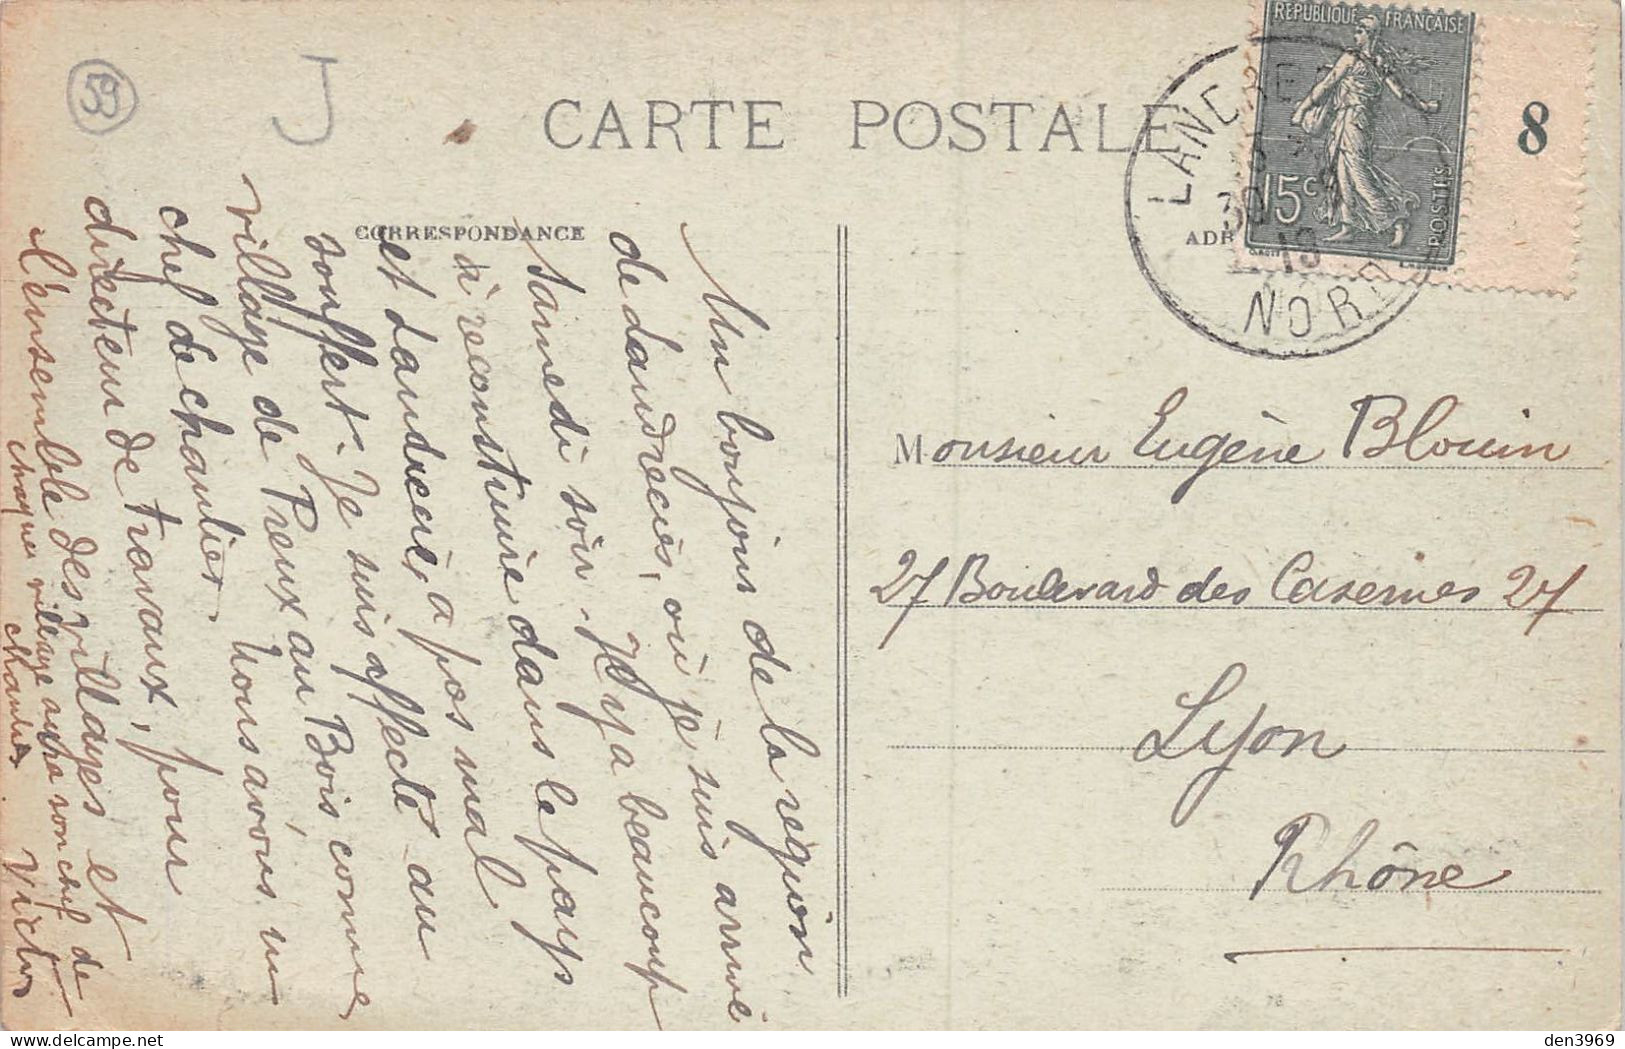 59
J
CARTE POSTALE
REPUBLIQUE FRANÇAISE
15c
POSTES
8
NORD
19
CORRESPONDANCE
ADR
Un bonjour de la region
de Landrecies, où je suis arrivé
samedi soir. Il y a beaucoup
à reconstruire dans le pays
et Landrecies a pas mal
souffert. Je suis affecté au
village de Preux au Bois comme
chef de chantier. Nous avons un
directeur de travaux, pour
l'ensemble des villages et
chaque village a son chef de
chantier
Victor
Monsieur Eugène Blouin
27 Boulevard des Casernes 27
Lyon
Rhône
den3969